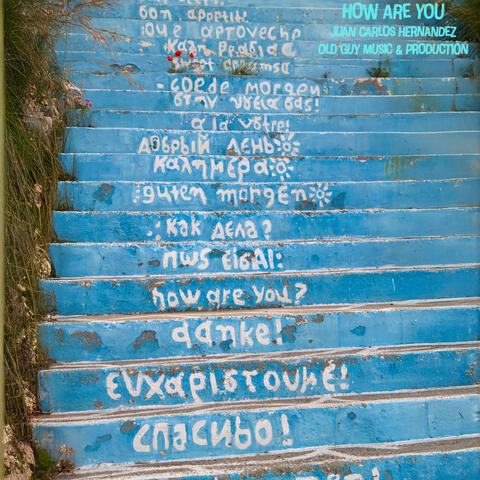 HOW ARE YOU
JUAN CARLOS HERNANDEZ
OLD GUY MUSIC & PRODUCTION
bon appetit!
καλη βραδια
goede morgen
στην υγεια σας!
a la votre!
добрый день
καλημερα
guten morgen
как дела?
πως εισαι;
how are you?
danke!
ευχαριστουμε!
спасибо!